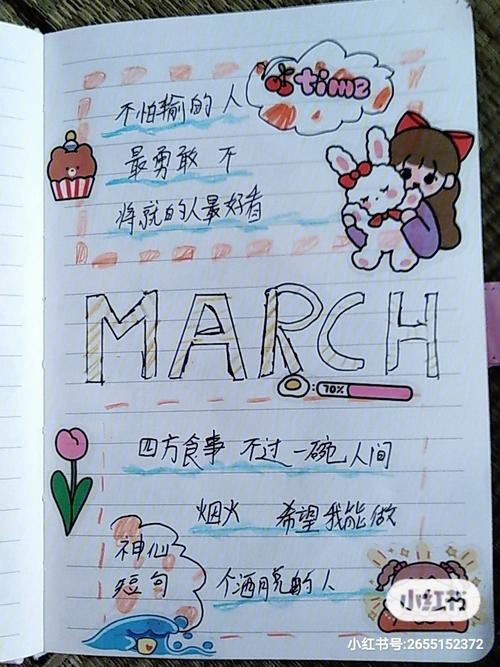 time
不怕输的人
最勇敢 不
将就的人最好看
MARCH
70%
四方食事 不过一碗人间
烟火 希望我能做
神仙
短句
个洒脱的人
小红书
小红书号:2655152372